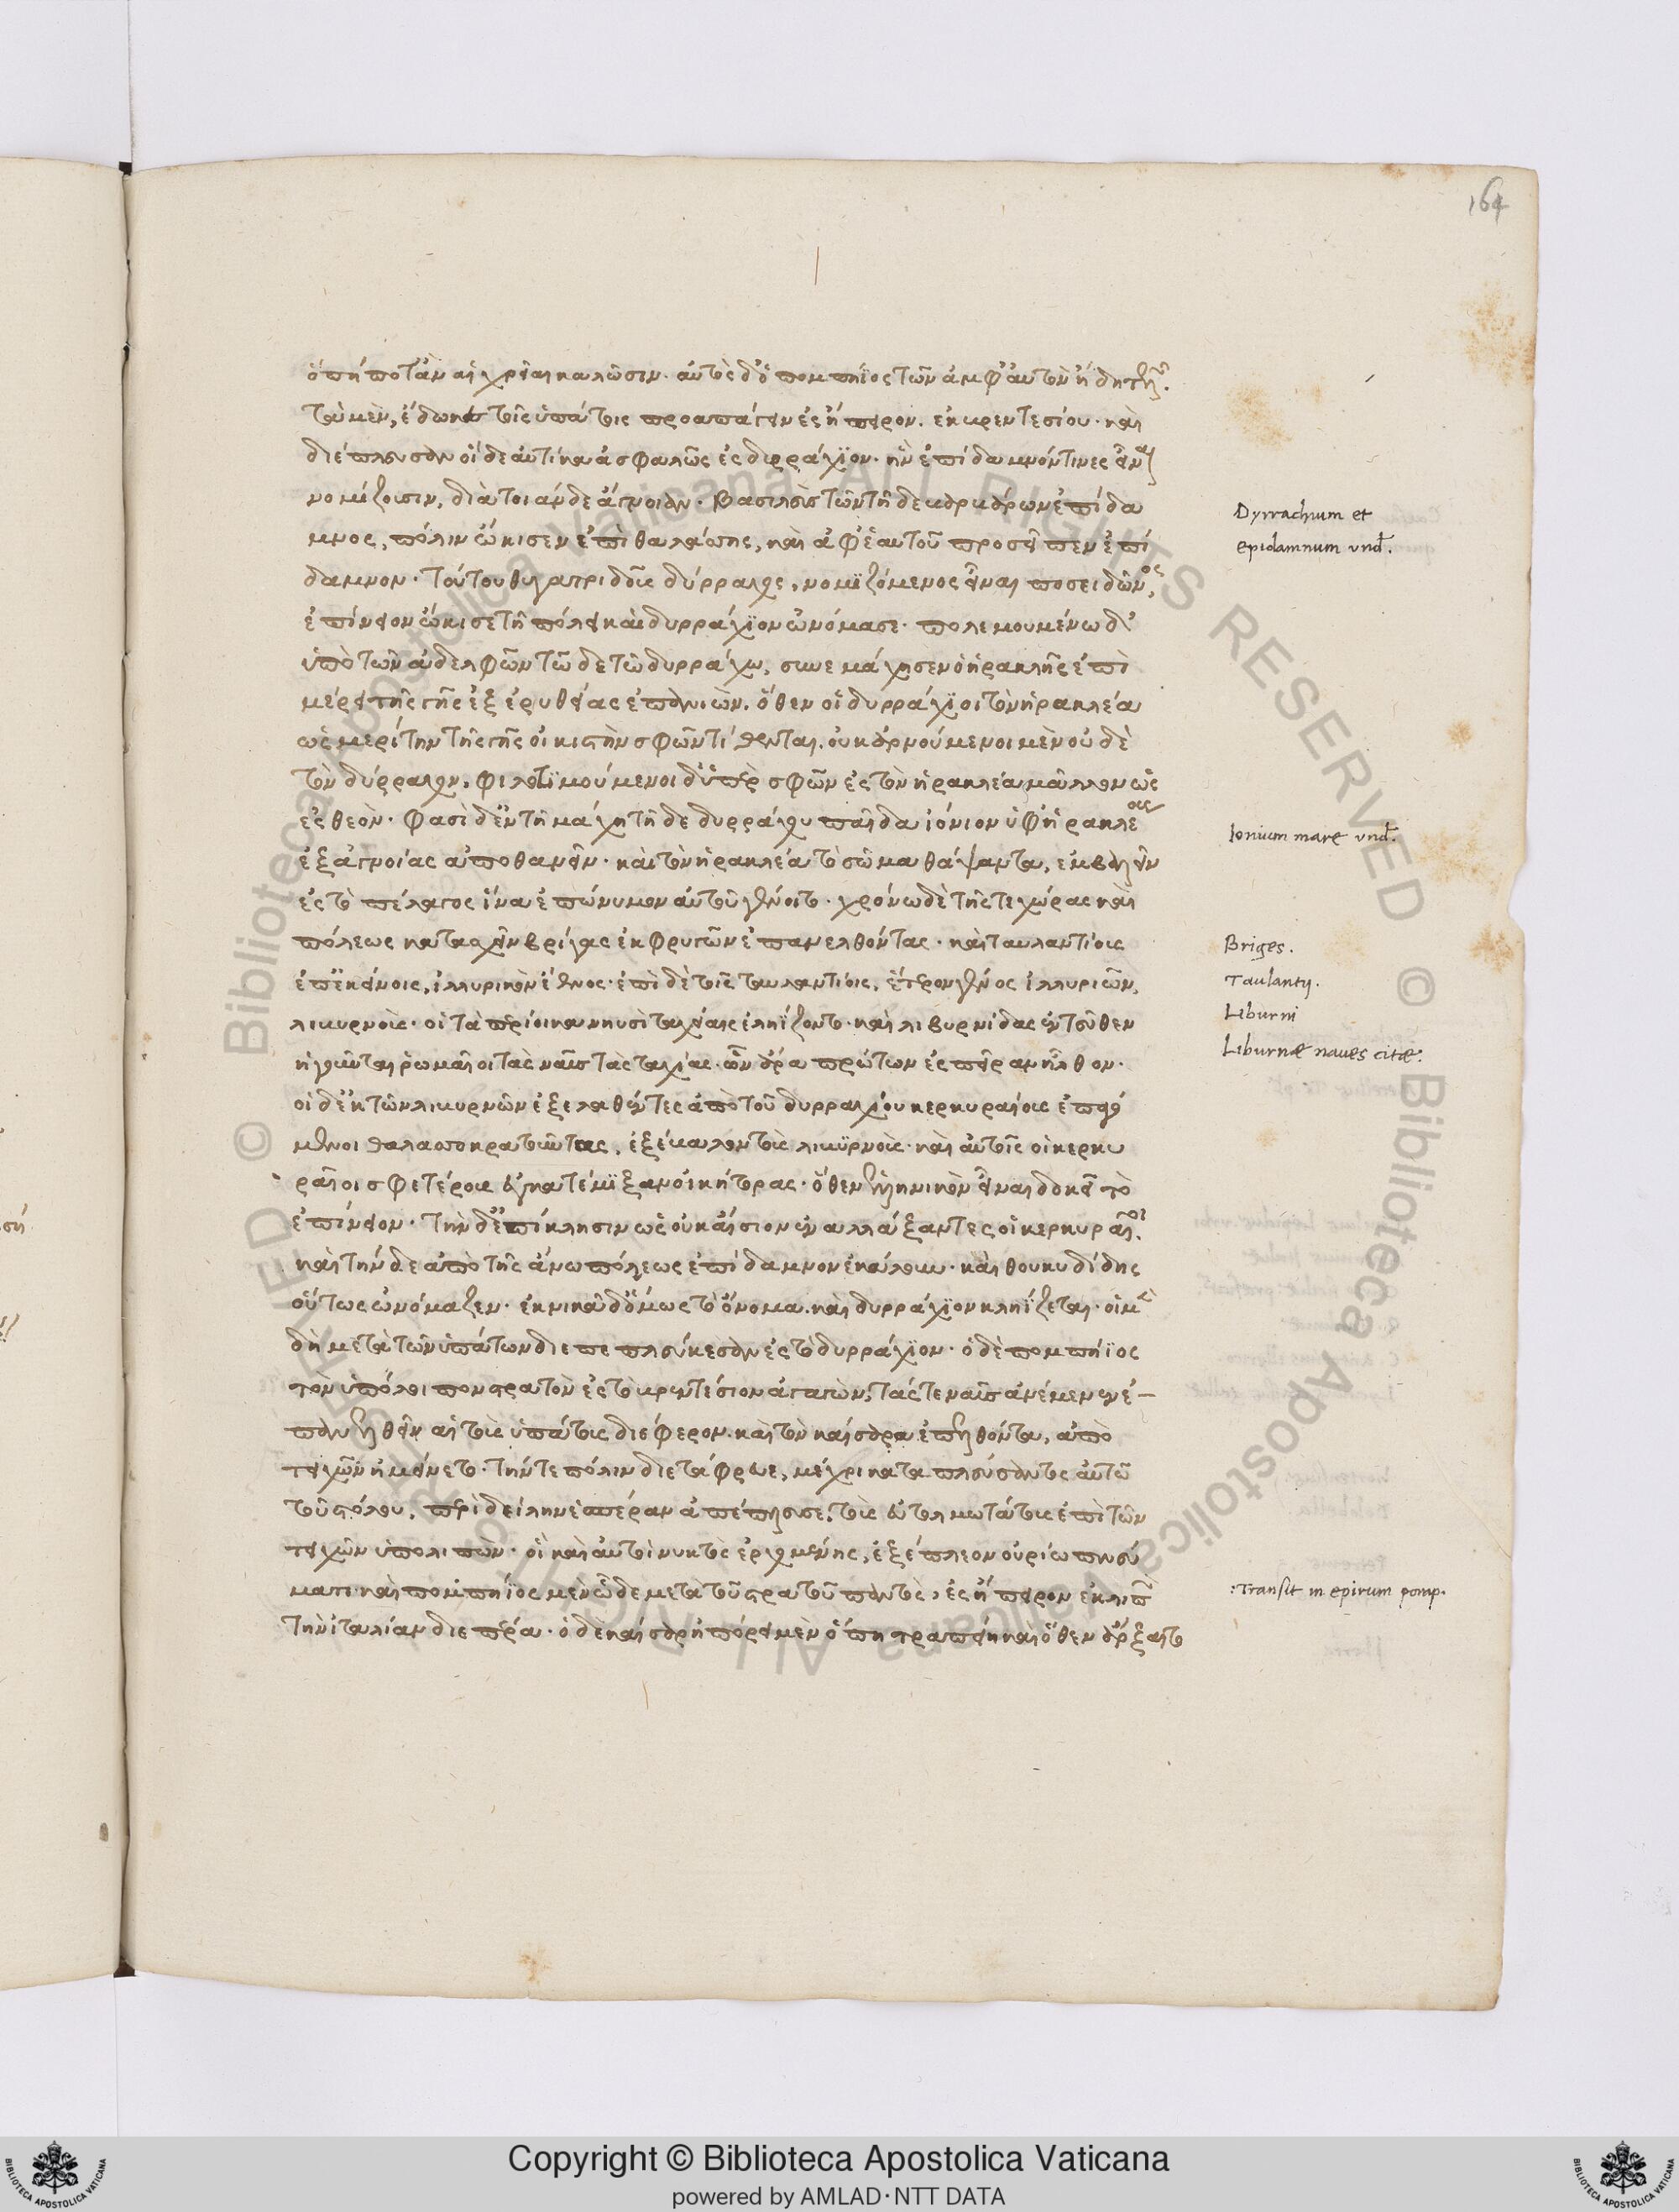 164
ὅπη ποτ' ἂν αἱ χρεῖαι καλῶσιν. αὐτὸς δ' ὁ πομπήϊος τῶν ἀμφ' αὐτὸν ἤδη τελῶν.
τὰ μὲν, ἔδωκε τοῖς ὑπάτοις προαπάγειν ἐς ἤπειρον. ἐκ βρεντεσίου. καὶ
διέπλευσαν οἵδε αὐτίκα ἀσφαλῶς ἐς δυρράχιον. ἣν ἐπίδαμνόν τινες εἶναι
νομίζουσιν, διὰ τοιάνδε ἄγνοιαν. βασιλεὺς τῶν τῇδε βαρβάρων ἐπίδα
μνος, πόλιν ᾤκισεν ἐπὶ θαλάσσης, καὶ ἀφ' ἑαυτοῦ προσεῖπεν ἐπί
δαμνον. τούτου θυγατριδοῦς δύρραχος, νομιζόμενος εἶναι ποσειδῶνος,
ἐπίνειον ᾤκισε τῇ πόλει καὶ δυρράχιον ὠνόμασε. πολεμουμένω δ'
ὑπὸ τῶν ἀδελφῶν τῶδε τῶ δυρράχω, συνεμάχησεν ὁ ἡρακλῆς ἐπὶ
μέρει τῆς γῆς ἐξ ἐρυθείας ἐπανιών. ὅθεν οἱ δυρράχιοι τὸν ἡρακλέα
ὡς μερίτην τῆς γῆς οἰκιστὴν σφῶν τίθενται. οὐκ ἀρνούμενοι μὲν οὐδὲ
τὸν δύρραχον, φιλοτιμούμενοι δ' ὑπὲρ σφῶν ἐς τὸν ἡρακλέα μᾶλλον ὡς
ἐς θεόν. φασὶ δ' ἐν τῇ μάχῃ τῇδε δυρράχου παῖδα ἰόνιον ὑφ' ἡρακλέους
ἐξ ἀγνοίας ἀποθανεῖν. καὶ τὸν ἡρακλέα τὸ σῶμα θάψαντα, ἐμβαλεῖν
ἐς τὸ πέλαγος ἵνα ἐπώνυμον αὐτοῦ γένοιτο. χρόνω δὲ τῆς τε χώρας καὶ
πόλεως κατασχεῖν βρίγας ἐκ φρυγῶν ἐπανελθόντας. καὶ ταυλαντίους
ἐπ' ἐκείνοις, ἰλλυρικὸν ἔθνος. ἐπὶ δὲ τοῖς ταυλαντίοις, ἕτερον γένος ἰλλυριῶν,
λιβυρνούς. οἳ τὰ περίοικα νηυσὶ ταχείαις ἐληΐζοντο. καὶ λιβυρνίδας ἐντεῦθεν
ἡγοῦνται ῥωμαῖοι τὰς ναῦς τὰς ταχίας. ὧν ἄρα πρώτων ἐς πεῖραν ἦλθον.
οἱ δ' ἐκ τῶν λιβυρνῶν ἐξελαθέντες ἀπὸ τοῦ δυρραχίου κερκυραίους ἐπαγό
μενοι θαλασσοκρατοῦντας, ἐξέβαλον τοὺς λιβυρνούς. καὶ αὐτοῖς οἱ κερκυ
ραῖοι σφετέρους ἐγκατέμιξαν οἰκήτορας. ὅθεν ἑλληνικὸν εἶναι δοκεῖ τὸ
ἐπίνειον. τὴν δ' ἐπίκλησιν ὡς οὐκ αἴσιον ἐναλλάξαντες οἱ κερκυραῖοι
καὶ τήνδε ἀπὸ τῆς ἄνω πόλεως ἐπίδαμνον ἐκάλουν. καὶ θουκυδίδης
οὕτως ὠνόμαζεν. ἐκνικᾶ δ' ὅμως τὸ ὄνομα. καὶ δυρράχιον κληΐζεται. οἱ μὲν
δὴ μετὰ τῶν ὑπάτων διεπεπλεύκεσαν ἐς τὸ δυρράχιον. ὁ δὲ πομπήϊος
τὸν ὑπόλοιπον στρατὸν ἐς τὸ βρεντέσιον ἀγαγὼν, τάς τε ναῦς ἀνέμενεν ἐ-
πανελθεῖν αἳ τοὺς ὑπάτους διέφερον. καὶ τὸν καίσαρα ἐπελθόντα, ἀπὸ
τειχῶν ἠμύνετο. τήν τε πόλιν διετάφρευε, μέχρι καταπλεύσαντος αὐτῶ
τοῦ στόλου, περὶ δείλην ἑσπέραν ἀπέπλευσε, τοὺς εὐτολμοτάτους ἐπὶ τῶν
τειχῶν ὑπολιπών. οἳ καὶ αὐτοὶ νυκτὸς ἀρχομένης, ἐξέπλεον οὐρίω πνεύ
ματι. καὶ πομπήϊος μὲν ὧδε μετὰ τοῦ στρατοῦ παντὸς, ἐς ἤπειρον ἐκλιπὼν
τὴν ἰταλίαν διεπέρα. ὁ δὲ καῖσαρ ἠπόρει μὲν ὅπη τραπείη καὶ ὅθεν ἄρξαιτο
Dyrrachium et
epidamnum vnd.
Ionium mare vnd.
Briges.
Taulantij.
Liburni
Liburnæ naues citæ:
:Transit in epirum pomp.
Copyright © Biblioteca Apostolica Vaticana
powered by AMLAD·NTT DATA